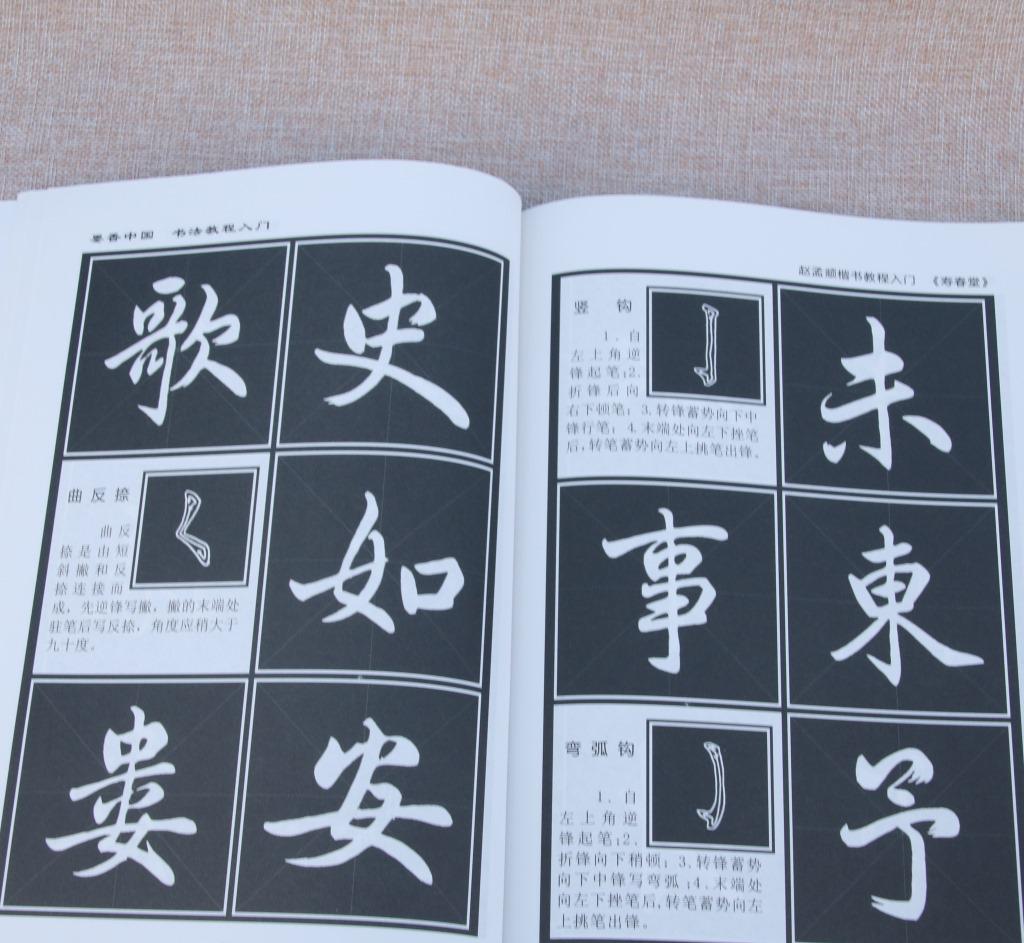 墨香中国 书法教程入门
歌 史
曲反捺
曲反
捺是由短
斜撇和反
捺连接而
成，先逆锋写撇，撇的末端处
驻笔后写反捺，角度应稍大于
九十度。
如
娄 安
赵孟頫楷书教程入门 《寿春堂》
竖钩
1、自
左上角逆
锋起笔；2、
折锋后向
右下顿笔；3、转锋蓄势向下中
锋行笔；4、末端处向左下挫笔
后，转笔蓄势向左上挑笔出锋。
未
事 東
弯弧钩
1、自
左上角逆
锋起笔；2、
折锋向下稍顿；3、转锋蓄势
向下中锋写弯弧；4、末端处
向左下挫笔后，转笔蓄势向左
上挑笔出锋。
予